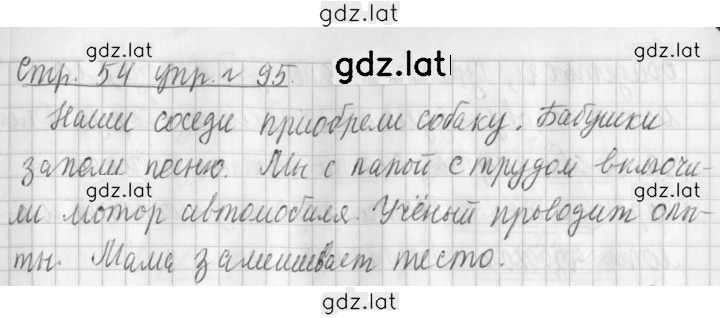 gdz.lat
gdz.lat
Стр. 54 упр. № 95.
gdz.lat
Наши соседи приобрели собаку. Бабушки
запели песню. Мы с папой с трудом включи-
gdz.lat
gdz.lat
ли мотор автомобиля. Учёный проводит опы-
ты. Мама замешивает тесто.
gdz.lat